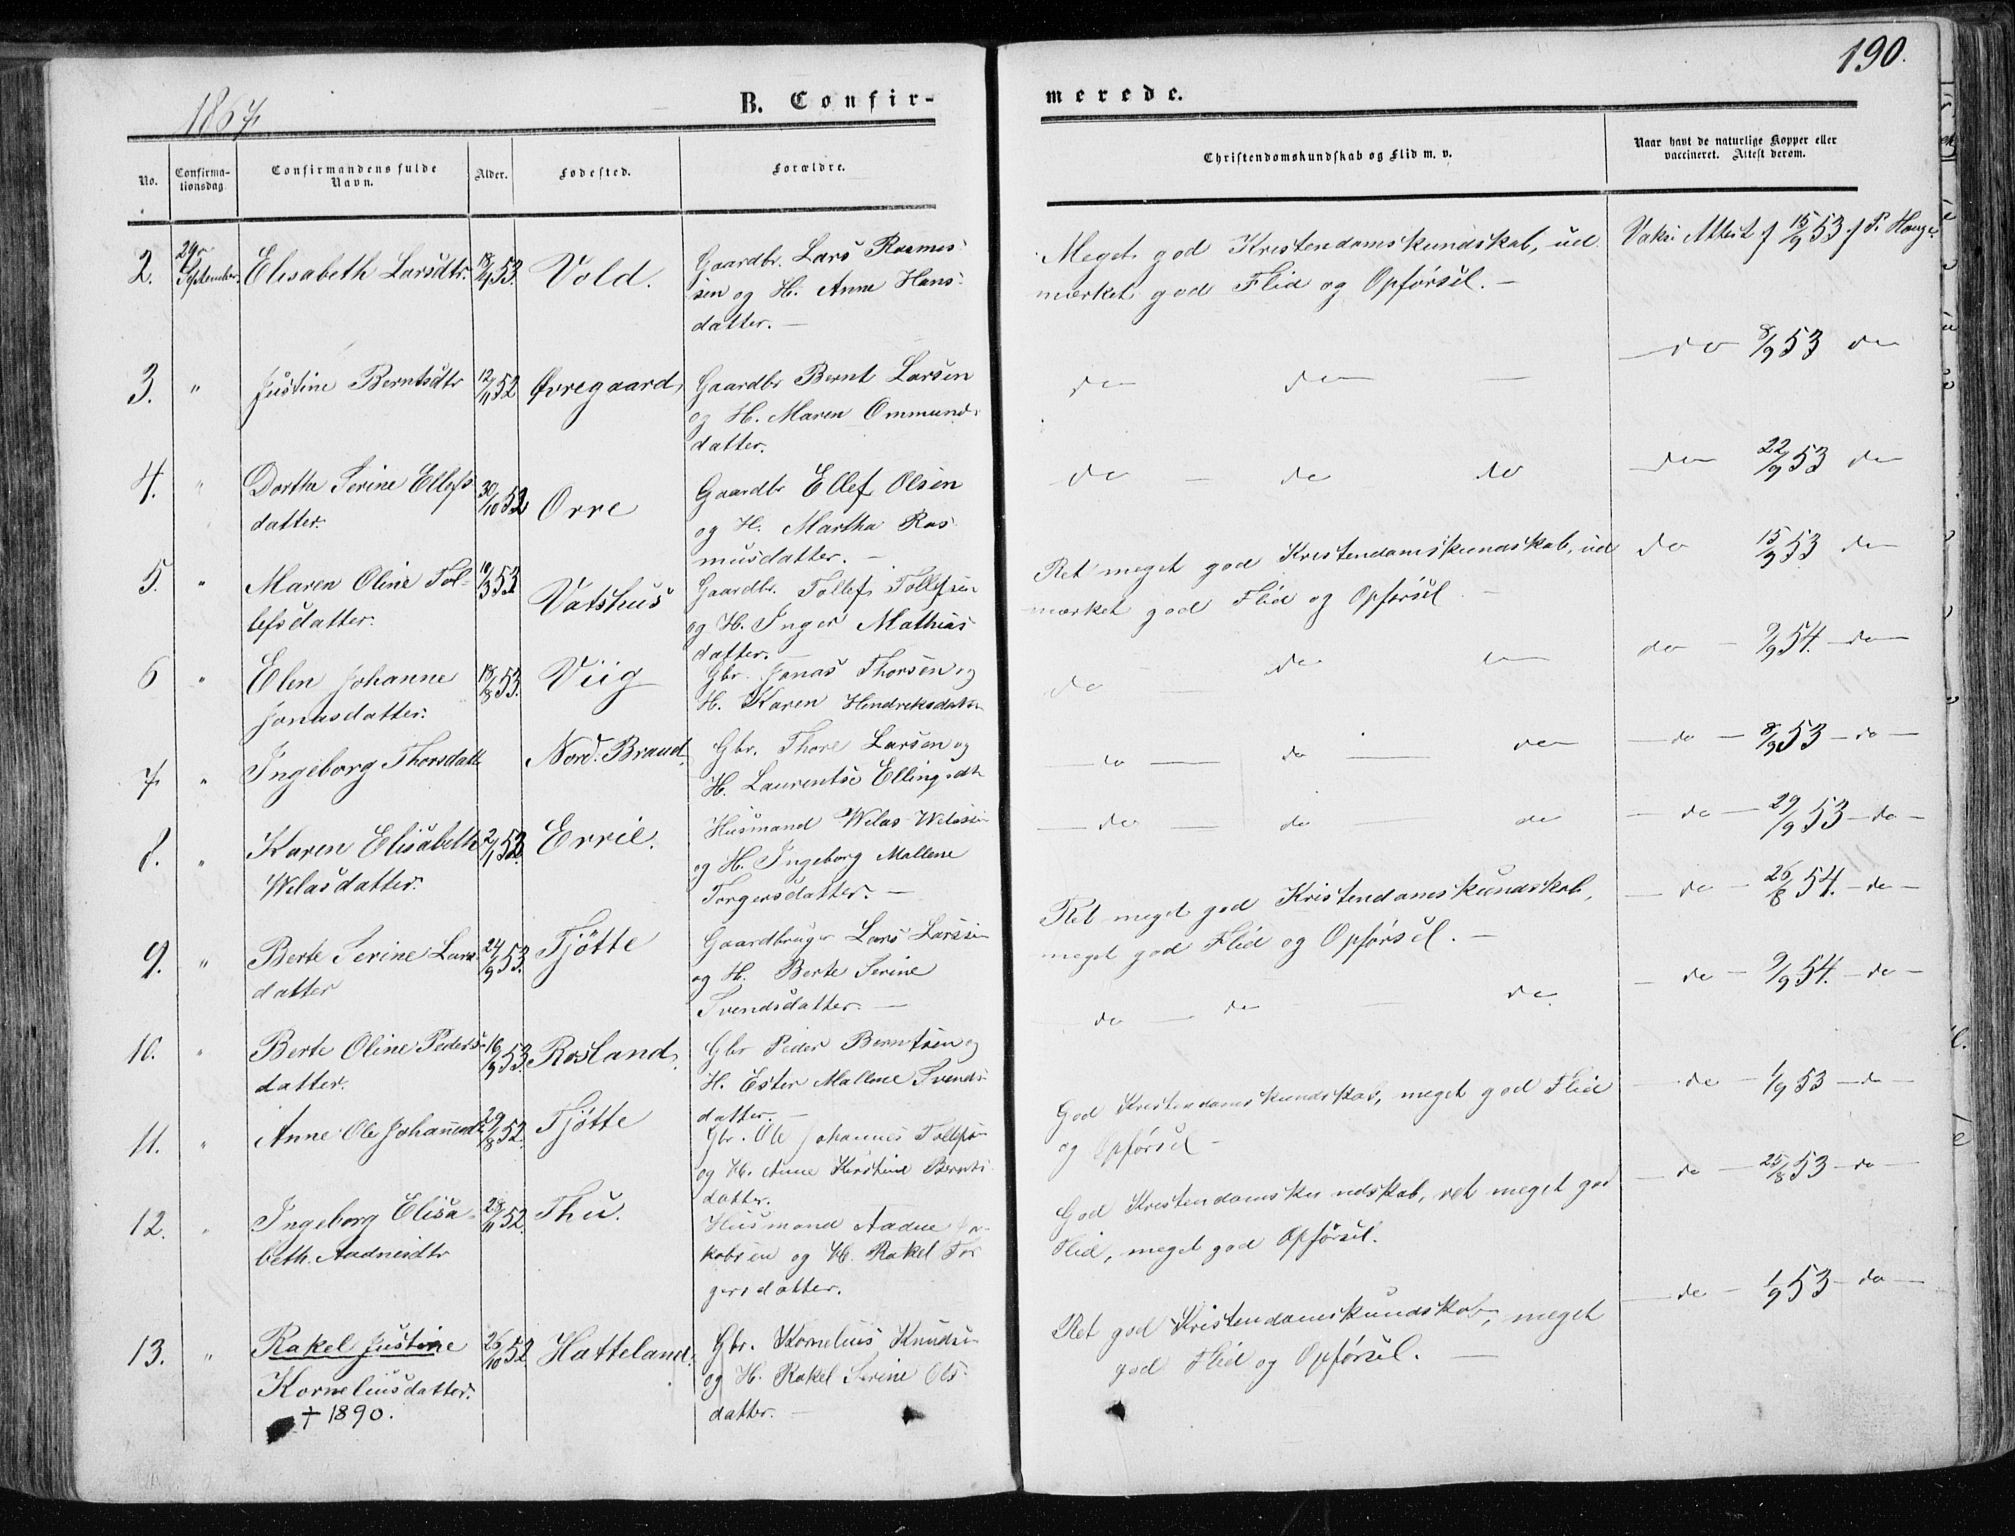 190.
1867.
B. Confir-
merede.
No.
Confirma-
tionsdag.
Confirmandens fulde
Navn.
Alder.
Fødested.
Forældre.
Christendomskundskab og Flid m. v.
Naar havt de naturlige Kopper eller
vaccineret. Attest derom.
2. 29de September. Elisabeth Larsdtr. 18/4 53. Vold. Gaardbr. Lars Rasmus-
sen og H. Anne Hans-
datter. —
Meget god Kristendomskundskab, ud
mærket god Flid og Opførsel. —
Vaks. Attest f 15/9 53 f P. Hauge
3. " Justine Berntsdtr 12/11 52 Øvregaard, Gaardbr Bernt Larsen
og H. Maren Ommunds
datter.
do do —
— do 8/9 53 do
4. " Dortha Serine Ellefs
datter. 30/10 52 Orre Gaardbr Ellef Olsen
og H. Martha Ras
musdatter. —
do — do do
— do 22/9 53 do
5. " Maren Oline Tol-
lefsdatter. 10/3 53 Vatshus Gaardbr. Tollef Tollefsen
og H. Inger Mathias
datter. —
Ret meget god Kristendomskundskab, ud
mærket god Flid og Opførsel. —
do 15/9 53 do
6 " Elen Johanne
Jonasdatter. 18/8 53. Viig Gbr. Jonas Thorsen og
H. Karen Hendriksdatter
do — do do
do — 9/9 54. — do —
7. " Ingeborg Thorsdatt Nord. Braud. Gbr. Thore Larsen og
H. Laurentse Ellingsdtr
— do — do — do
— do — 8/9 53 — do —
8. " Karen Elisabeth
Welasdatter. 2/1 53. Errie. Husmand Welas Welasen
og H. Ingeborg Mallene
Torgersdatter. —
— do — do do
— do — 29/9 53 — do —
9. " Berte Serine Lars
datter 24/9 53. Tjøtte Gaardbruger Lars Larsen
og H. Berte Serine
Svendsdatter. —
Ret meget god Kristendomskundskab,
meget god Flid og Opførsel. —
— do — 26/8 54. — do —
10. " Berte Oline Peders-
datter. 16/9 53. Rosland. Gbr Peder Berntsen og
H. Ester Mallene Svends-
datter. —
— do — do — do.
— do — 9/9 54. — do —
11. " Anne Ole Johannesdtr 29/8 52. Tjøtte Gbr. Ole Johannes Tollefsen
og H. Anne Kirstine Bernts
datter.
God Kristendomskundskab, meget god Flid
og Opførsel —
— do — 1/9 53 — do —
12. " Ingeborg Elisa
beth Aadnesdtr 28/11 52. Thu. Husmand Aadne Ja-
kobsen og H. Rakel Tor
gersdatter.
God Kristendomskundskab, ret meget god
Flid, meget god Opførsel.
— do — 25/8 53 — do —
13. " Rakel Justine
Korneliusdatter.
+ 1890. 26/10 52 Hatteland. Gbr. Kornelius Knudsen
og H. Rakel Serine Ols-
datter. —
Ret god Kristendomskundskab, meget
god Flid og Opførsel. —
— do — 1/9 53 — do —